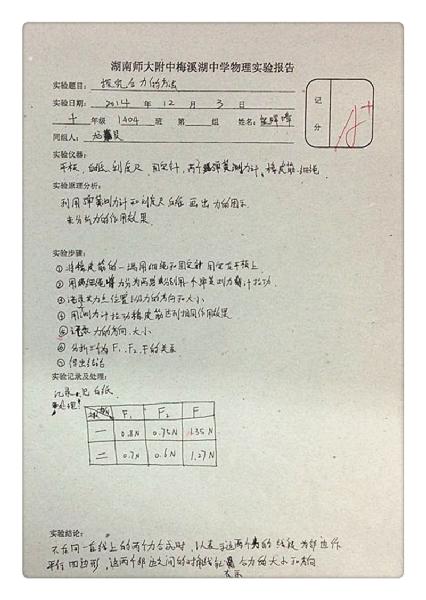 湖南师大附中梅溪湖中学物理实验报告
实验题目: 探究合力的方法
实验日期: 2014 年 12 月 3 日
记
分
A+
十 年级 1404 班 第 组 姓名:
同组人:
实验仪器:
平板、白纸 刻度尺 图钉, 两个弹簧测力计、橡皮筋、细绳
实验原理分析:
利用弹簧测力计和刻度尺 白纸 画出力的图示
来分析力的作用效果
实验步骤:
① 将橡皮筋的一端用细绳和图定在平板上
② 用两细绳 分为两头 分别用一个弹簧测力计拉动
③ 记录 位置 力的方向和大小
④ 用 测力计拉动橡皮筋达到相同作用效果
⑤ 记录 力的方向、大小
⑥ 分析 F₁、F₂、F的关系
⑦ 得出结论
实验记录及处理:
记录: 白纸
处理:
F₁ F₂ F
一 0.8N 0.75N 1.35N
二 0.7N 0.6N 1.27N
实验结论:
不在同一直线上的两个力合成时, 以表示这两个力的线段为邻边作
平行四边形, 这两个邻边之间的对角线就 合力的大小和方向
表示